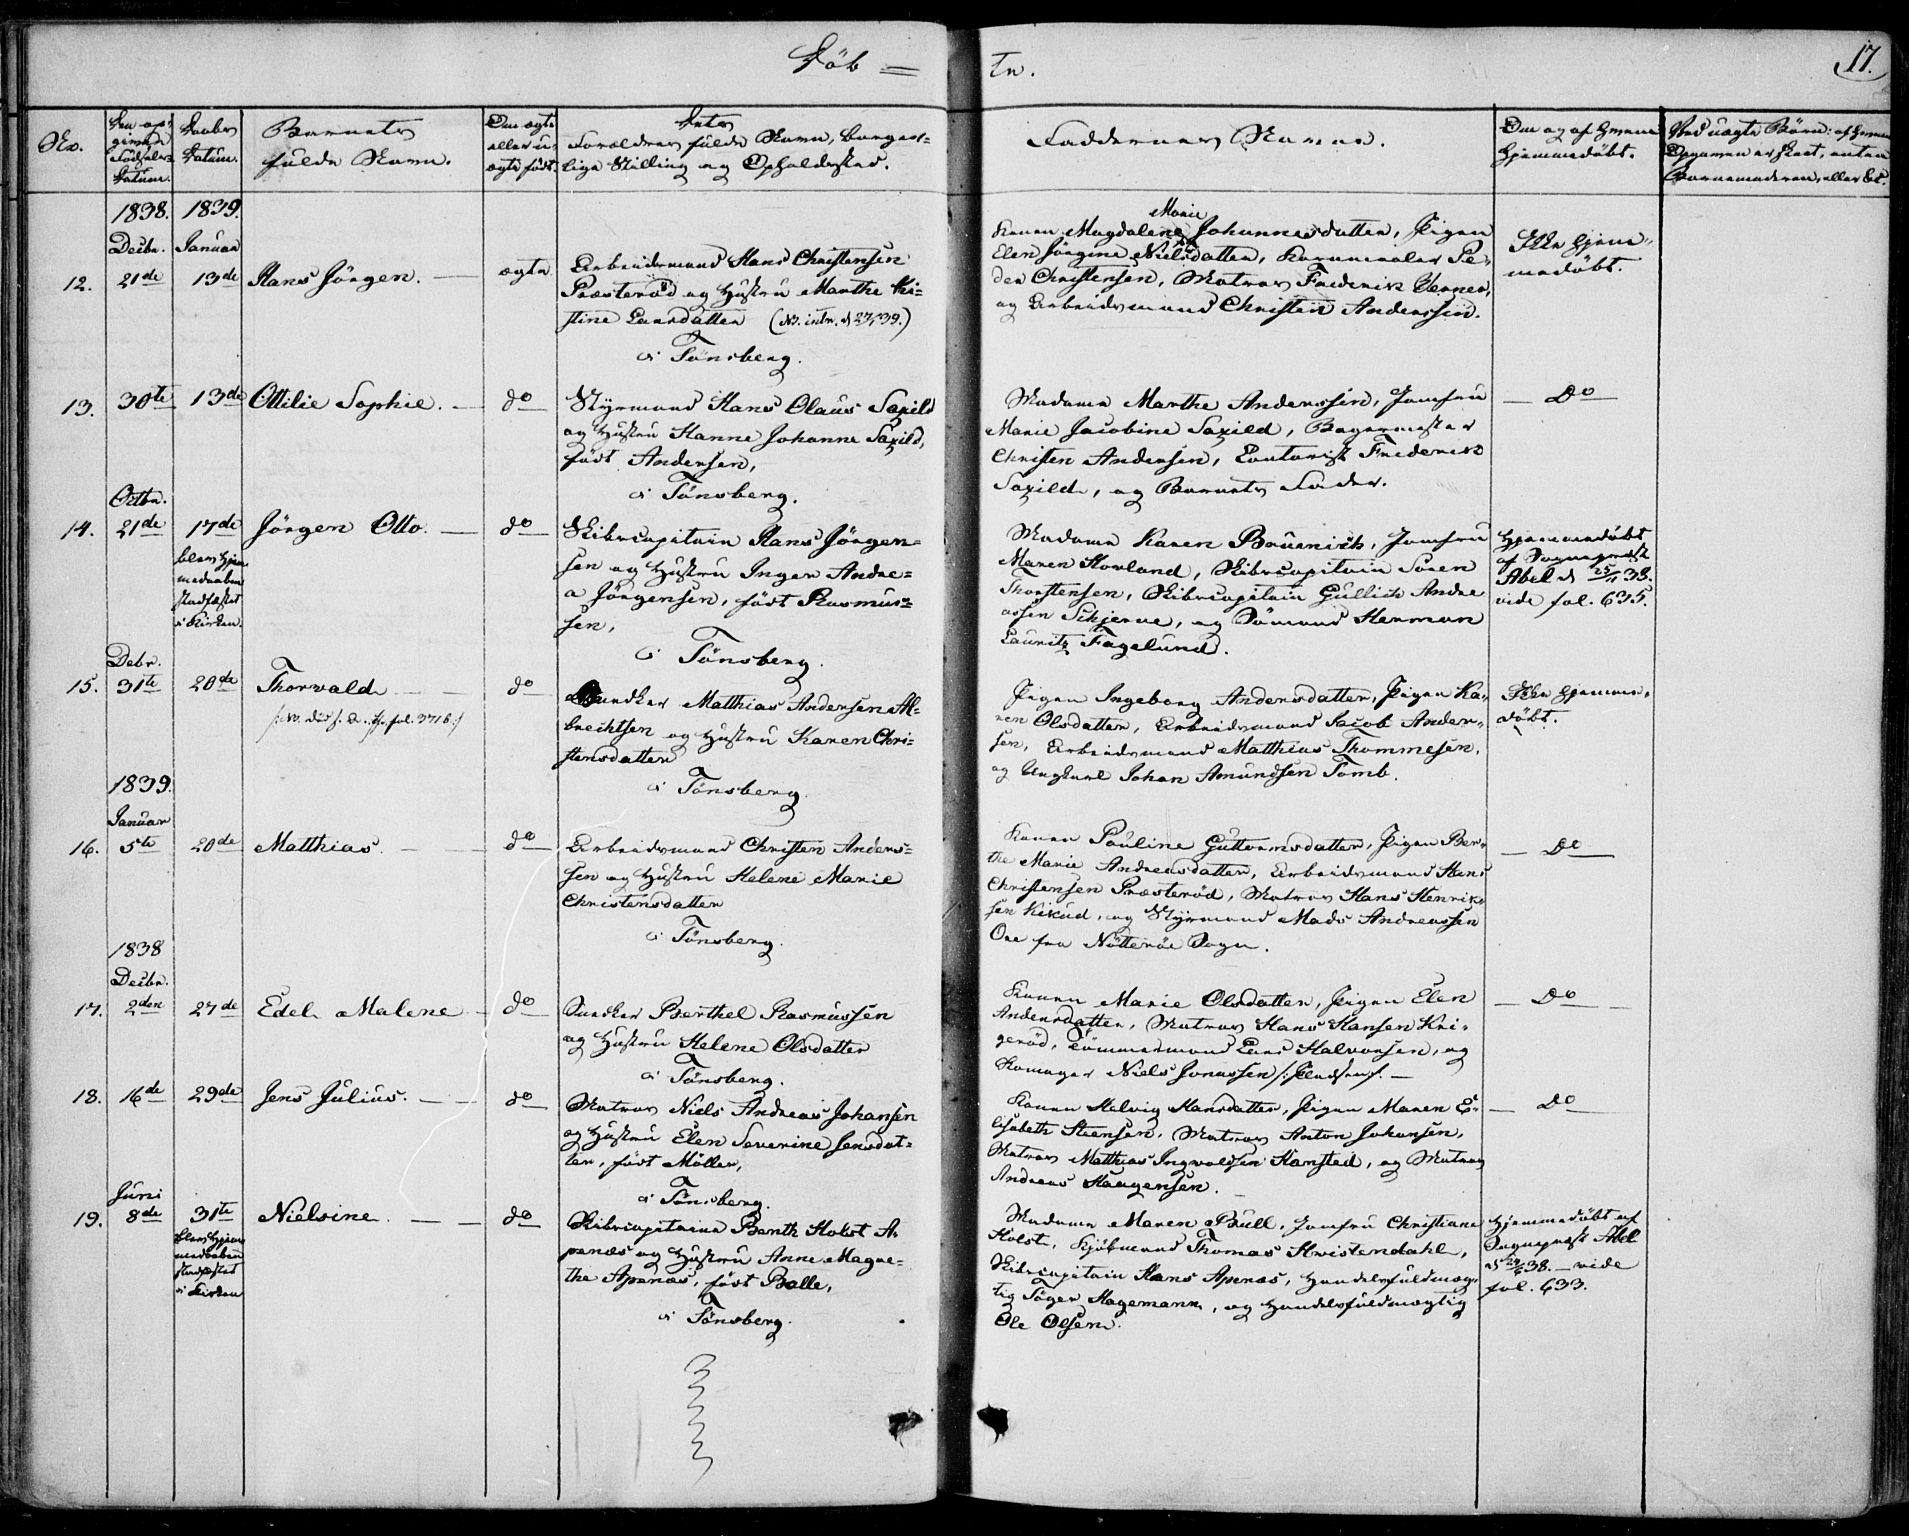 Döb =
tn.
17.
No.
Den op-
givne
Födsels-
Datum.
Daabs
Datum.
Barnets
fulde Navn.
Om ægte
eller u-
ægte födt.
Dets
Forældres fulde Navn, borger-
lige Stilling og Opholdssted.
Faddernes Navne.
Om og af hvem
hjemmedöbt.
Ved uægte Börn: af hvem
Opgaven er skeet, enten
Barnemoderen, eller
1838. 1839.
Decbr. Januar
12. 21de 13de Hans Jörgen. ægte
Arbeidsmand Hans Christensen
Præsteröd og Hustru Marthe Ki-
stine Larsdatter (NB. intr. d 27/1 39.)
i Tönsberg.
Marie
Konen Magdalene Johannesdatter, Pigen
Elen Jörgine Nielsdatter, Pe-
der Christensen, Matros Frederik Verner,
og Arbeidsmand Christen Anderssen.
Ikke hjem-
medöbt.
13. 30te 13de Ottilie Sophie. do
Styrmand Hans Olaus Saxild
og Hustru Hanne Johanne Saxild,
födt Andersen,
i Tönsberg.
Madame Marthe Anderssen, Jomfru
Marie Jacobine Saxild, Bagermester
Christen Andersen, Contorist Frederik
Saxild, og Barnets Fader.
Do
Octbr.
14. 21de 17de Jörgen Otto. do
blev hjem-
medaaben
stadfæstet
i Kirken.
Skibscapitain Hans Jörgen-
sen og Hustru Inger Andre-
a Jörgensen, födt Rasmus-
sen,
i Tönsberg.
Madame Karen Bruenich, Jomfru
Maren Hovland, Skibscapitain Sören
Thorstensen, Skibscapitain Gullich Andre
assen Schjerve, og Sömand Herman
Lauritz Fagelund.
Hjemmedöbt
af Sognepræst
Abel d 25/11 38.
vide fol. 635.
Debr.
15. 31te 20de Thorvald do
Matthias Andersen Al-
brechtsen og Hustru Karen Chri-
stensdatter
i Tönsberg.
Pigen Ingeborg Andersdatter, Pigen Ka-
ren Olsdatter, Arbeidsmand Jacob Ander-
sen, Arbeidsmand Matthias Thommesen,
og Ungkarl Johan Amundsen Tomb.
Ikke hjemme-
döbt.
1839.
Januar
16. 5te 20de Matthias. do
Arbeidsmand Christen Anders-
sen og Hustru Helene Marie
Christensdatter
i Tönsberg.
Konen Pauline Guttormsdatter, Pigen Ber-
the Marie Andreasdatter, Arbeidsmand Hans
Christensen Præsteröd, Matros Hans Henrik-
sen Kikud, og Styrmand Mads Andreassen
Oee fra Nötteröe Sogn.
Do
1838
Decbr.
17. 2den 27de Edel Malene do
Berthel Rasmussen
og Hustru Helene Olsdatter
i Tönsberg.
Konen Marie Olsdatter, Pigen Elen
Andersdatter, Matros Hans Hansen Kri-
geröd, Tömmermand Lars Halvorsen, og
Skomager Niels Jonassen
Do
18. 16de 29de Jens Julius. do
Matros Niels Andreas Johansen
og Hustru Elen Severine Jensdat-
ter, födt Möller,
i Tönsberg.
Konen Helvig Hansdatter, Pigen Maren E-
lisabeth Steensen, Matros Anton Johansen,
Matros Matthias Ingvoldsen Hansted, og Matros
Andreas Haagensen.
Do
Juni
19. 8de 31te Nielsine. do
blev hjem-
medaaben
stadfæstet
i Kirken
Skibscapitaine Benth Holst A-
penæs og Hustru Anne Magre-
the Apenæs, födt Balle,
i Tönsberg.
Madame Maren Bull, Jomfru Christiane
Holst, Kjöbmand Thomas Kwistendahl,
Skibscapitain Hans Apenæs, Handelsfuldmæg-
tig Söger Hagemann, og Handelsfuldmægtig
Ole Olsen.
Hjemmedöbt af
Sognepræst Abel
38. - vide
fol. 633.